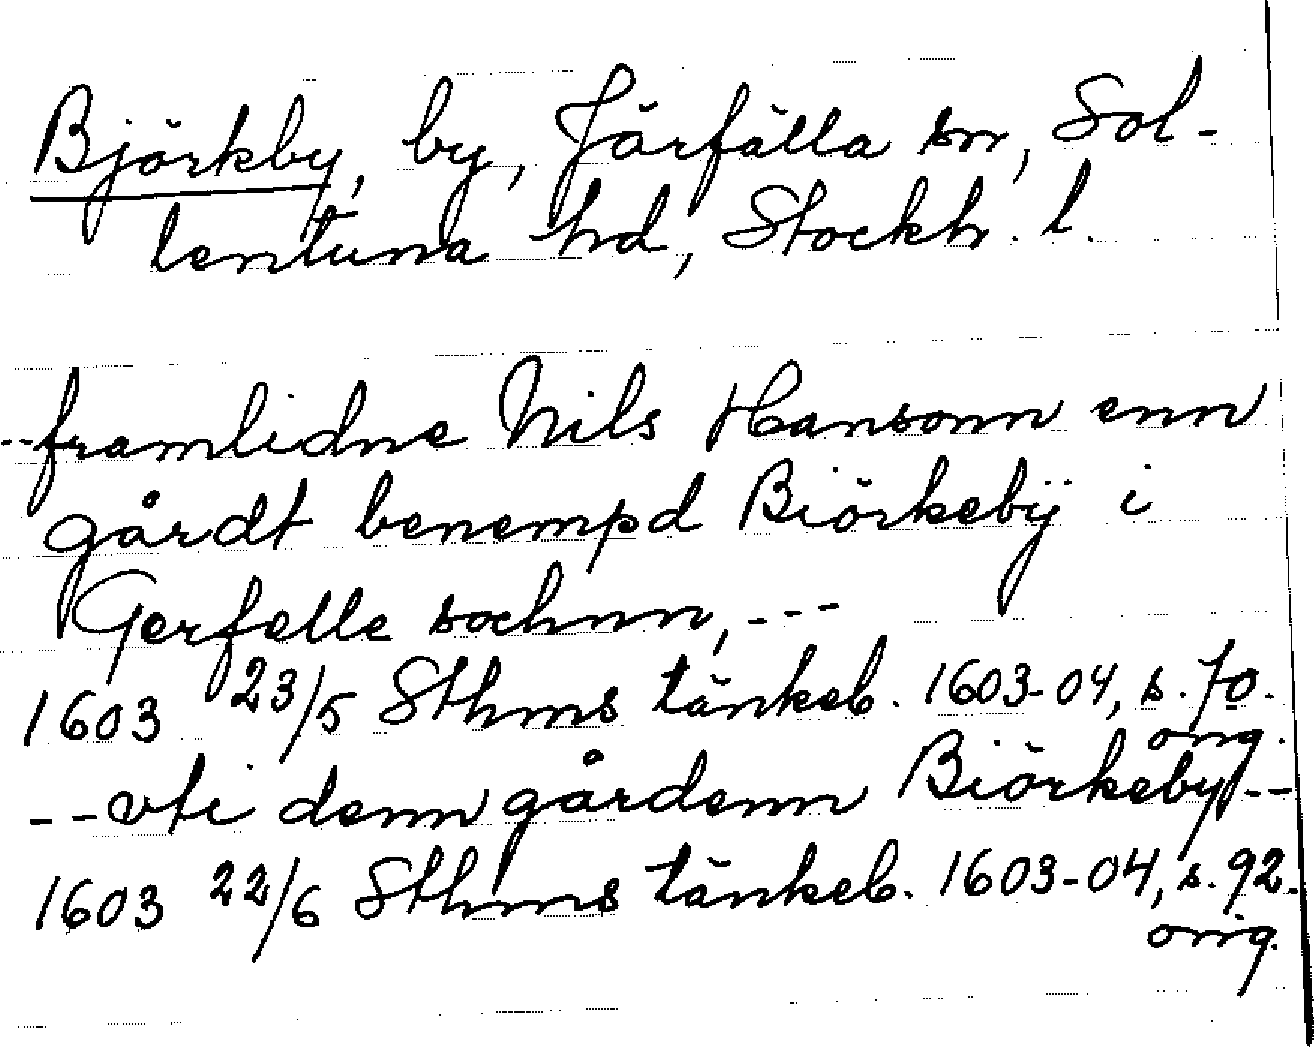 Björkby, by, Järfälla sn, Sol-
lentuna hd, Stockh. l.
--framlidne Nils Hansonn enn
gårdt benempd Biörkebÿ i
Gerfelle sochnn, ---
1603 23/5 Sthms tänkeb. 1603-04, s. 70.
orig.
--vti denn gårdenn Biörkeby--
1603 22/6 Sthms tänkeb. 1603-04, s. 92.
orig.